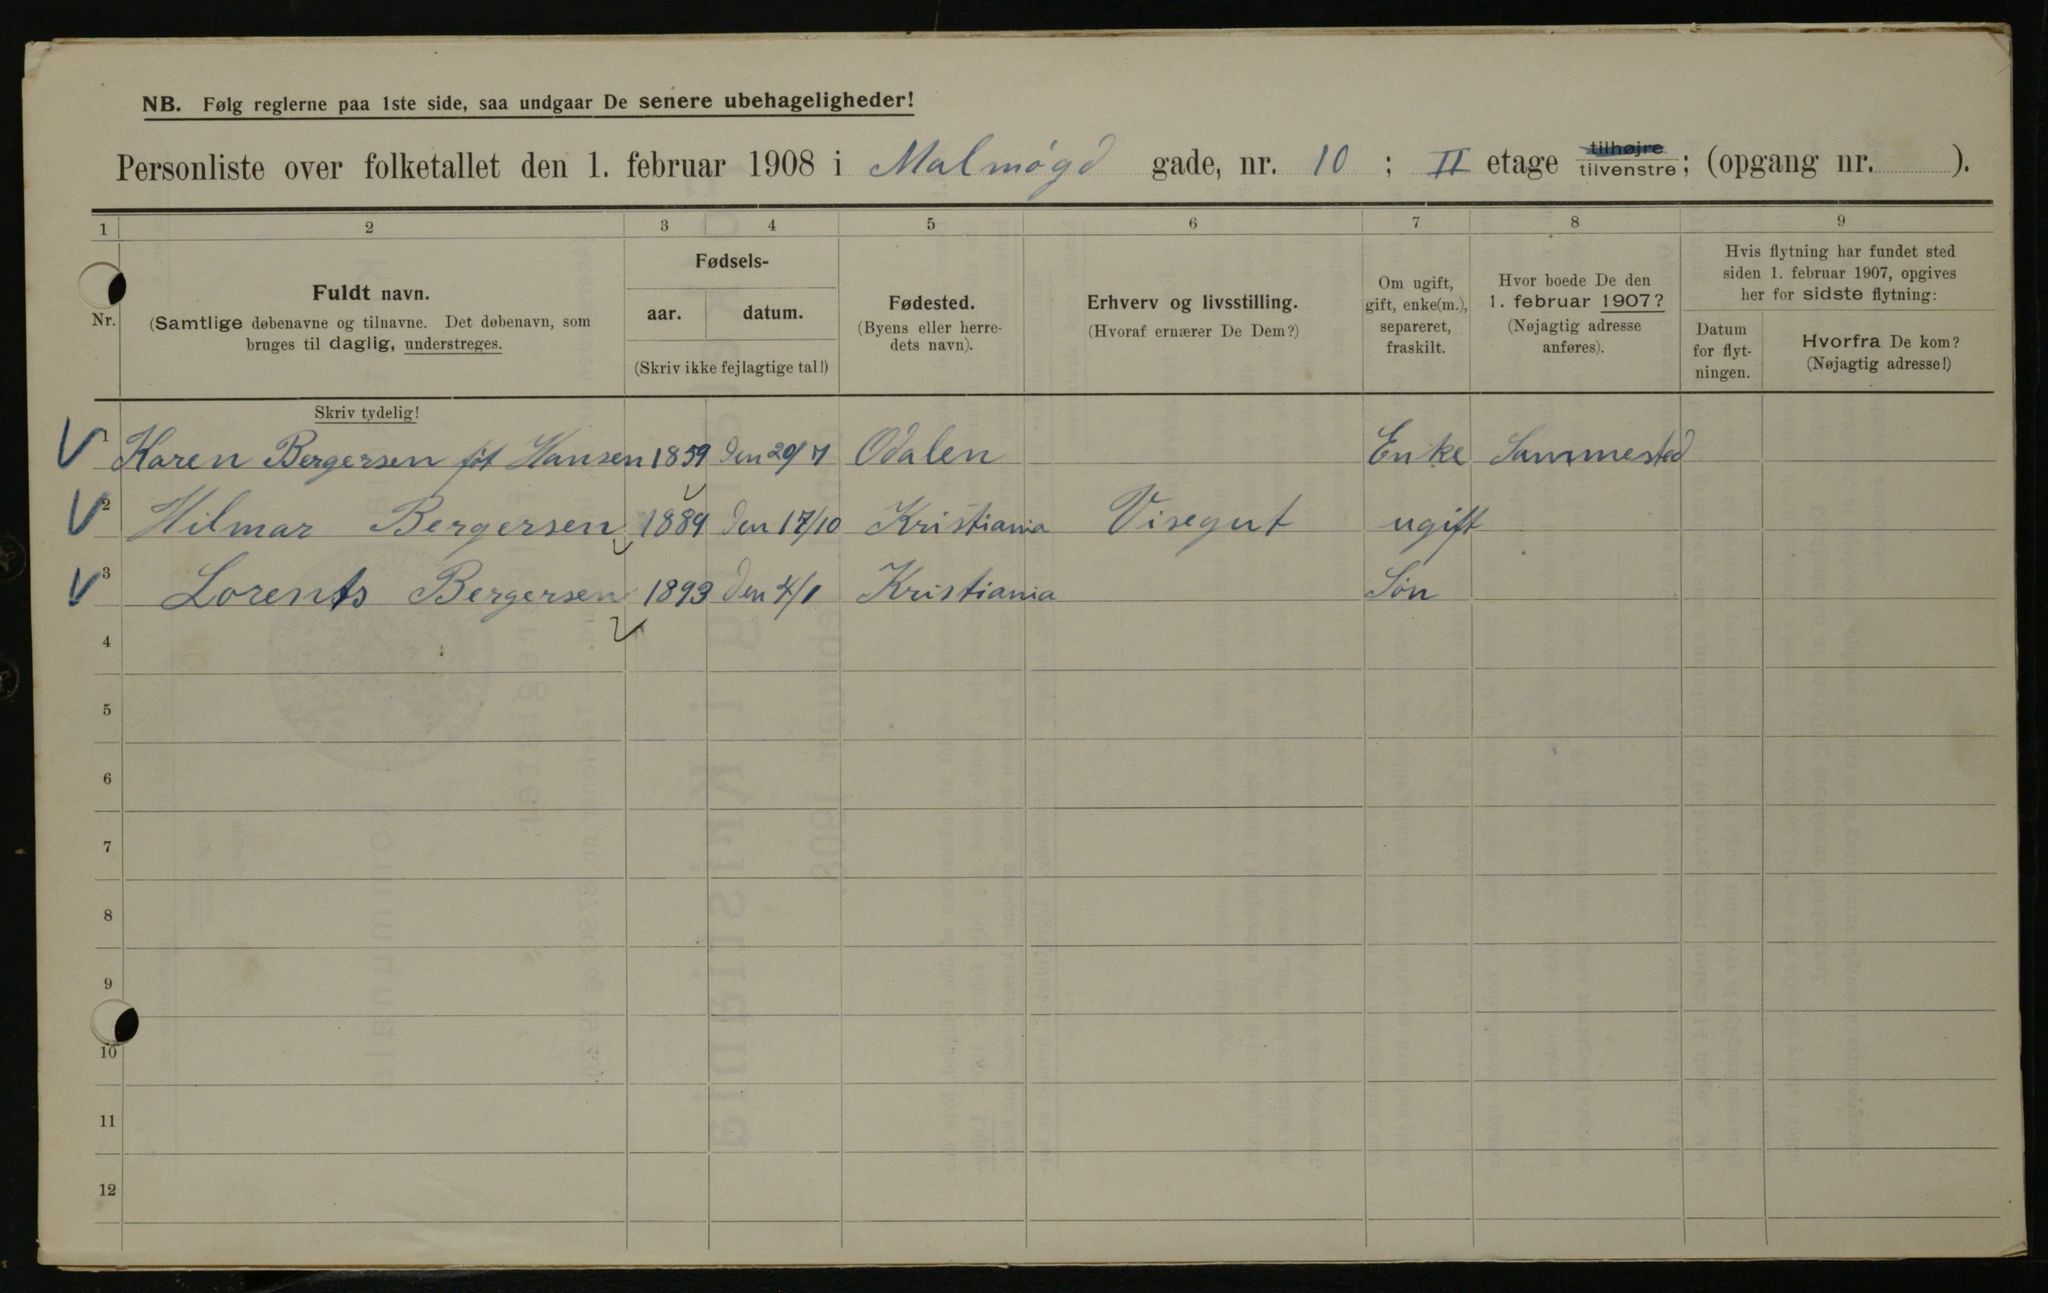 NB. Følg reglerne paa 1ste side, saa undgaar De senere ubehageligheder!
Personliste over folketallet den 1. februar 1908 i Malmøgd gade, nr. 10 ; II etage tilhøjre tilvenstre; (opgang nr. ).
1 2 3 4 5 6 7 8 9
Nr.
Fuldt navn.
(Samtlige døbenavne og tilnavne. Det døbenavn, som
bruges til daglig, understreges.
Fødsels-
aar. datum.
(Skriv ikke fejlagtige tal!)
Fødested.
(Byens eller herre-
dets navn).
Erhverv og livsstilling.
(Hvoraf ernærer De Dem?)
Om ugift,
gift, enke(m.),
separeret,
fraskilt.
Hvor boede De den
1. februar 1907?
(Nøjagtig adresse
anføres).
Hvis flytning har fundet sted
siden 1. februar 1907, opgives
her for sidste flytning:
Datum
for flyt-
ningen.
Hvorfra De kom?
(Nøjagtig adresse!)
Skriv tydelig!
Karen Bergersen föt Hansen 1859 den 20/7 Odalen Enke Sammested
2 Hilmar Bergersen 1889 den 17/10 Kristiania Visegut ugift
3 Lorents Bergersen 1893 den 4/1 Kristiania Sön
4
5
6
7
8
9
10
11
12